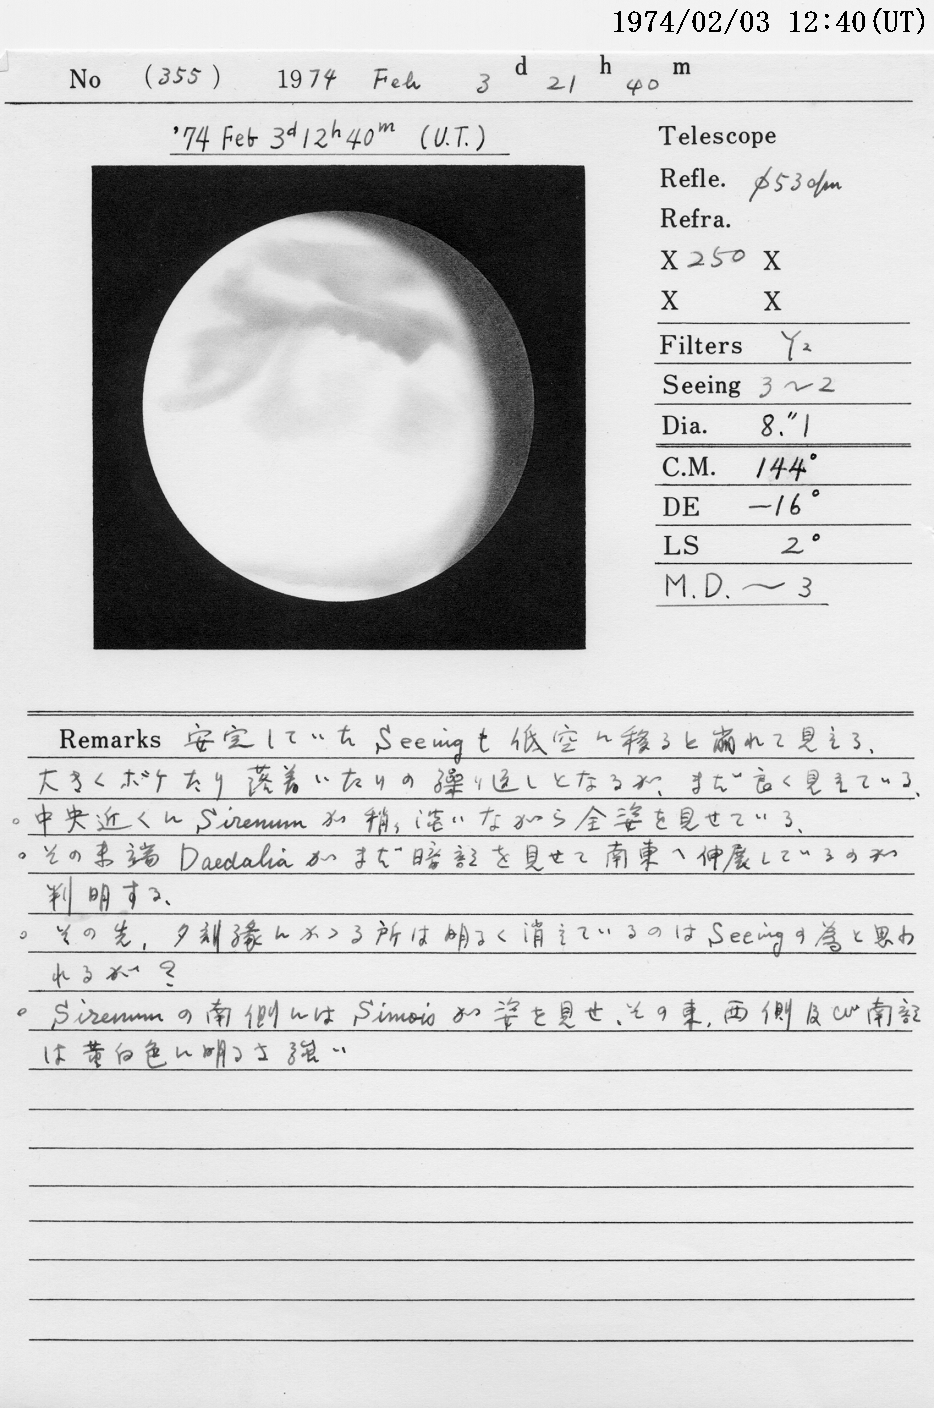 1974/02/03 12:40(UT)
No (355) 1974 Feb 3 d 21 h 40 m
'74 Feb 3d 12h 40m (U.T.)
Telescope
Refle. φ53cm
Refra.
X 250 X
X X
Filters Y2
Seeing 3~2
Dia. 8."1
C.M. 144°
DE -16°
LS 2°
M.D. ~ 3
Remarks 安定していた Seeingも低空に移ると崩れて見える、
大きくボケたり落着いたりの繰り返しとなるが、まだ良く見えている、
。中央近くに Sirenumが稍々淡いながら全姿を見せている、
。その末端 Daedaliaがまだ暗部を見せて南東へ伸展しているのが
判明する、
。その先、夕刻縁にかゝる所は明るく消えているのは Seeingの為と思わ
れるが?
。Sirenumの南側には Simoisが姿を見せ、その東、西側及び南部
は黄白色に明るさ強い